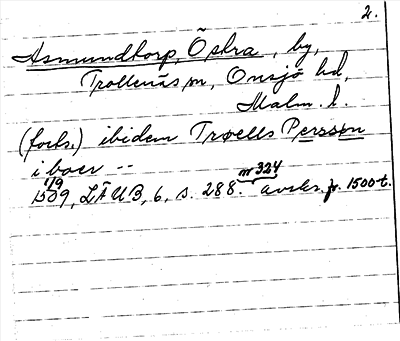 2.
Asmundtorp, Östra, by,
Trollenäs sn, Onsjö hd,
Malm. l.
(forts.) ibidem Trøells Perssøn
i boer --
1/9 nr 324
1509, LÄUB, 6, s. 288. avskr. fr. 1500-t.